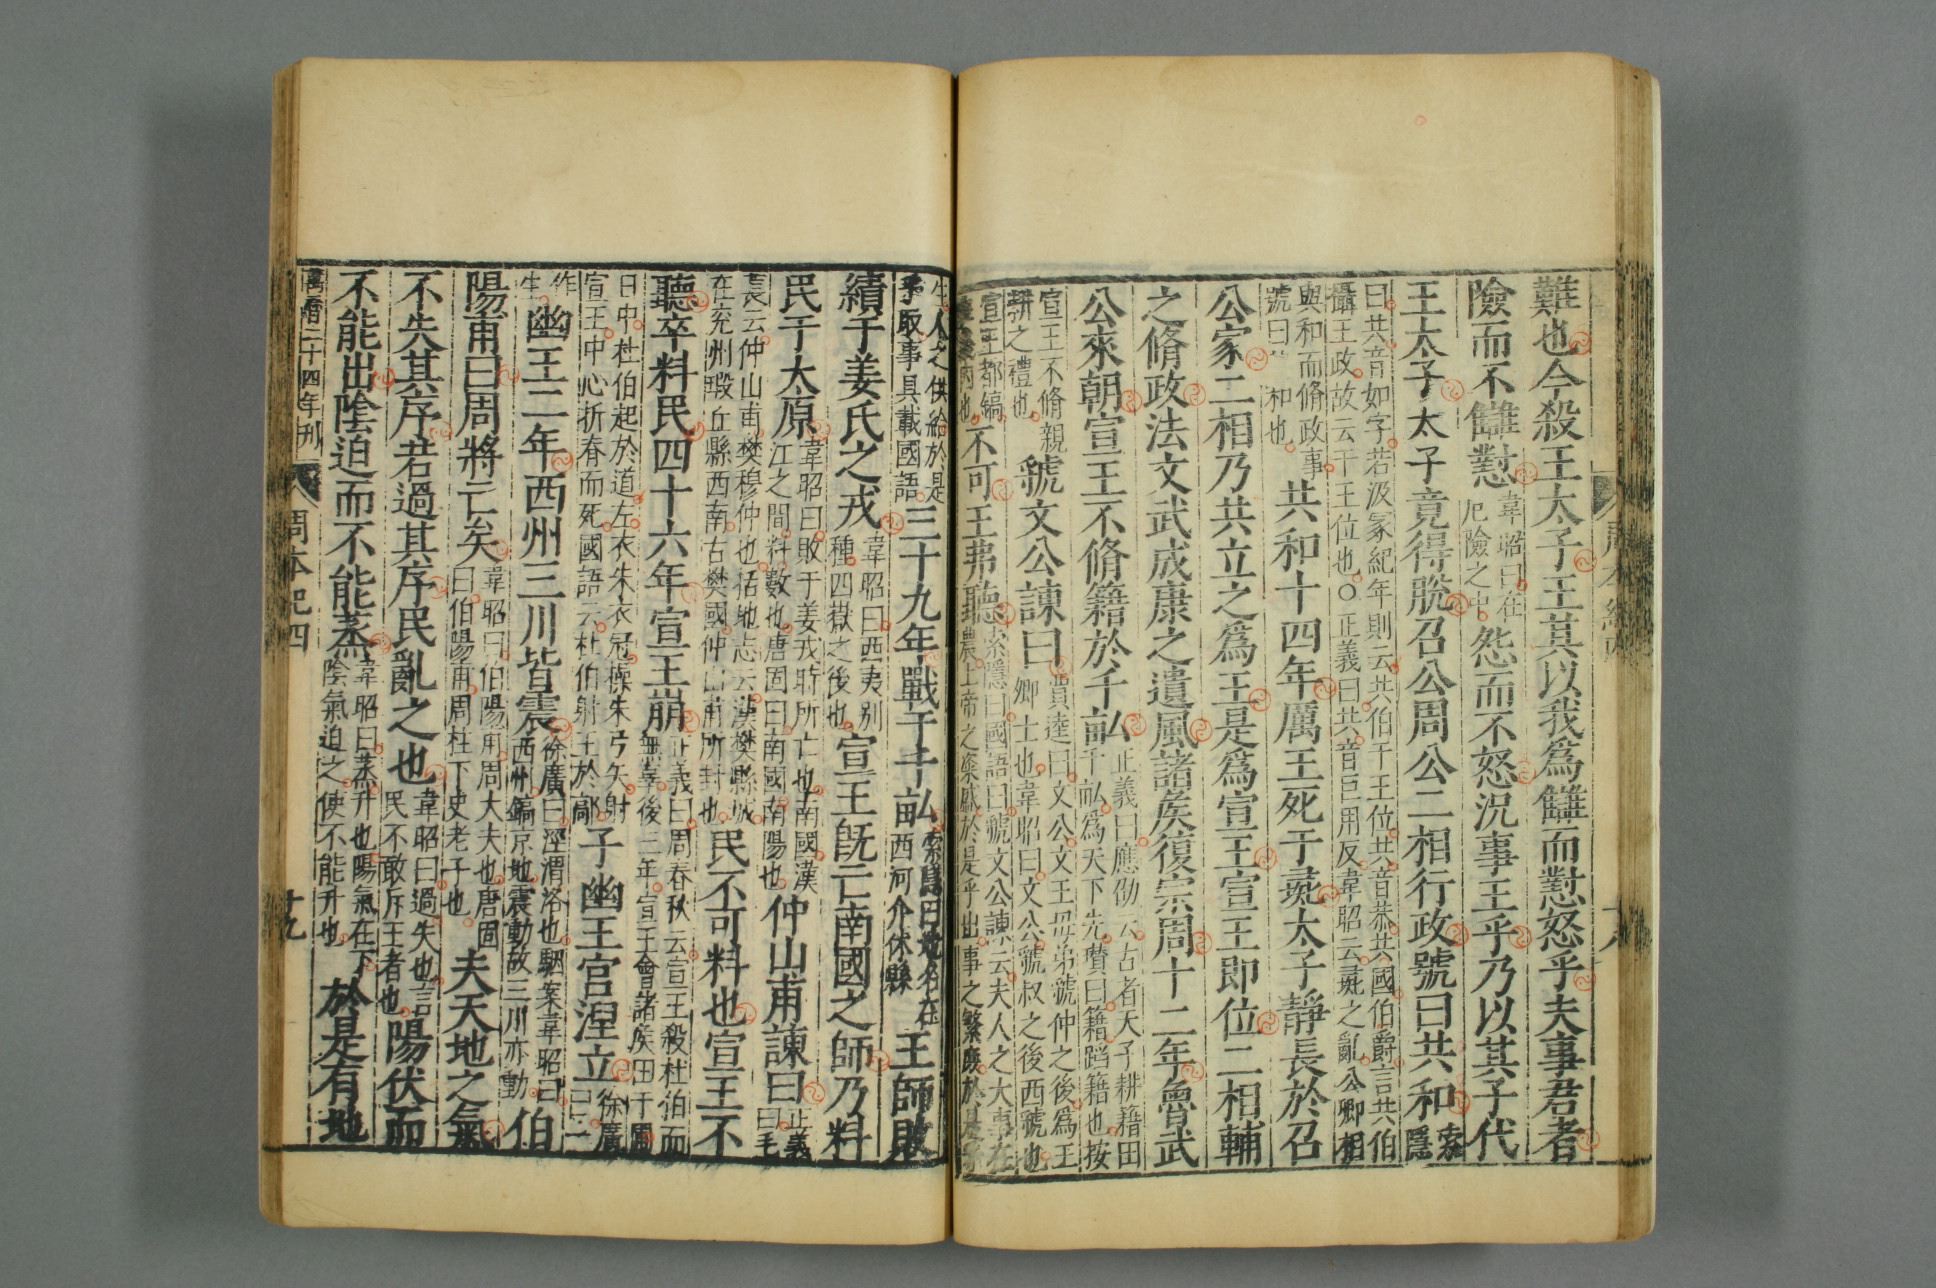 難也今殺王太子王其以我爲讎而懟怒乎夫事君者
險而不讎懟
韋昭曰在
厄險之中
怨而不怒況事王乎乃以其子代
王太子太子竟得脫召公周公二相行政號曰共和
索
隱
曰共音如字若汲冢紀年則云共伯干王位共音恭共國伯爵言共伯
攝王政故云干王位也○正義曰共音巨用反韋昭云彘之亂公卿相
與和而脩政事
號曰 和也
共和十四年厲王死于彘太子靜長於召
公家二相乃共立之爲王是爲宣王宣王即位二相輔
之脩政法文武成康之遺風諸矦復宗周十二年魯武
公來朝宣王不脩籍於千畝
正義曰應劭云古者天子耕籍田
千畝爲天下先瓉曰籍蹈籍也按
宣王不脩親
耕之禮也
虢文公諫曰
賈逵曰文公文王母弟虢仲之後爲王
卿士也韋昭曰文公虢叔之後西虢也
宣王都鎬
也
不可王弗聽
索隱曰國語曰虢文公諫云夫人之大事在
農上帝之粢盛於是乎出事之繁庶於是乎
生人之供給於是
乎取事具載國語
三十九年戰于千畝
索隱曰地名在
西河介休縣
王師敗
績于姜氏之戎
韋昭曰西夷别
種四嶽之後也
宣王旣亡南國之師乃料
民于太原
韋昭曰敗于姜戎時所亡也南國漢
江之間料數也唐固曰南國南陽也
仲山甫諫曰
正義
曰毛
萇云仲山甫樊穆仲也括地志云漢樊縣城
在兖州瑕丘縣西南古樊國仲山甫所封也
民不可料也宣王不
聽卒料民四十六年宣王崩
正義曰周春秋云宣王殺杜伯而
無辜後三年宣王會諸矦田于圃
日中杜伯起於道左衣朱衣冠操朱弓矢射
宣王中心折脊而死國語云杜伯射王於鄗
子幽王宮湼立
徐廣
曰一
作
生
幽王二年西州三川皆震
徐廣曰涇渭洛也駰案韋昭曰
西州鎬京地震動故三川亦動
伯
陽甫曰周將亡矣
韋昭曰伯陽甫周大夫也唐固
曰伯陽甫周柱下史老子也
夫天地之氣
不失其序若過其序民亂之也
韋昭曰過失也言
民不敢斥王者也
陽伏而
不能出陰迫而不能蒸
韋昭曰蒸升也陽氣在下
陰氣迫之使不能升也
於是有地
二十四年刊
周本紀四
十九